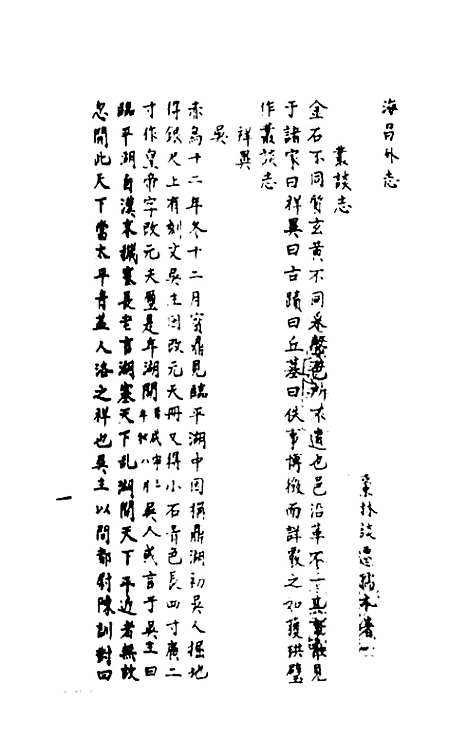 海昌外志
棗林談遷孺木著
叢談志
金石不同質玄黃不同采馨逸所不遺也邑沿革不一其事散見
于諸家曰祥異曰古蹟曰丘墓曰佚事博徵而詳覈之如獲珙璧
作叢談志
祥異
吳
赤烏十二年冬十二月寶鼎見臨平湖中因稱鼎湖初吳人掘地
得銀尺上有刻文吳主因改元天冊又得小石青色長四寸廣二
寸作皇帝字改元天璽是年湖開吳人或言于吳主曰
臨平湖自漢末穢塞長老言湖塞天下亂湖開天下平近者無故
忽開此天下當太平青蓋入洛之祥也吳主以問都尉陳訓對曰
一